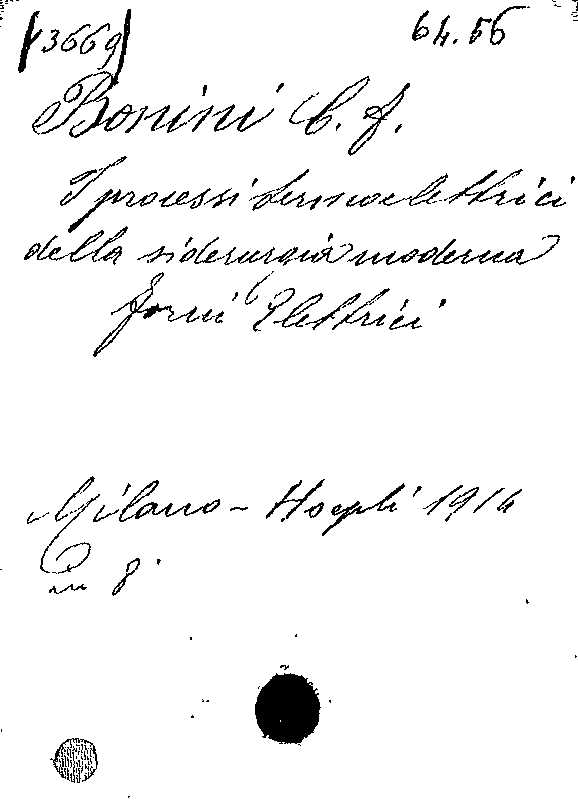 (3669)
64.56
Bonini C. F.
I processi termoelettrici
della siderurgia moderna
Forni Elettrici
Milano - Hoepli 1914
in 8°